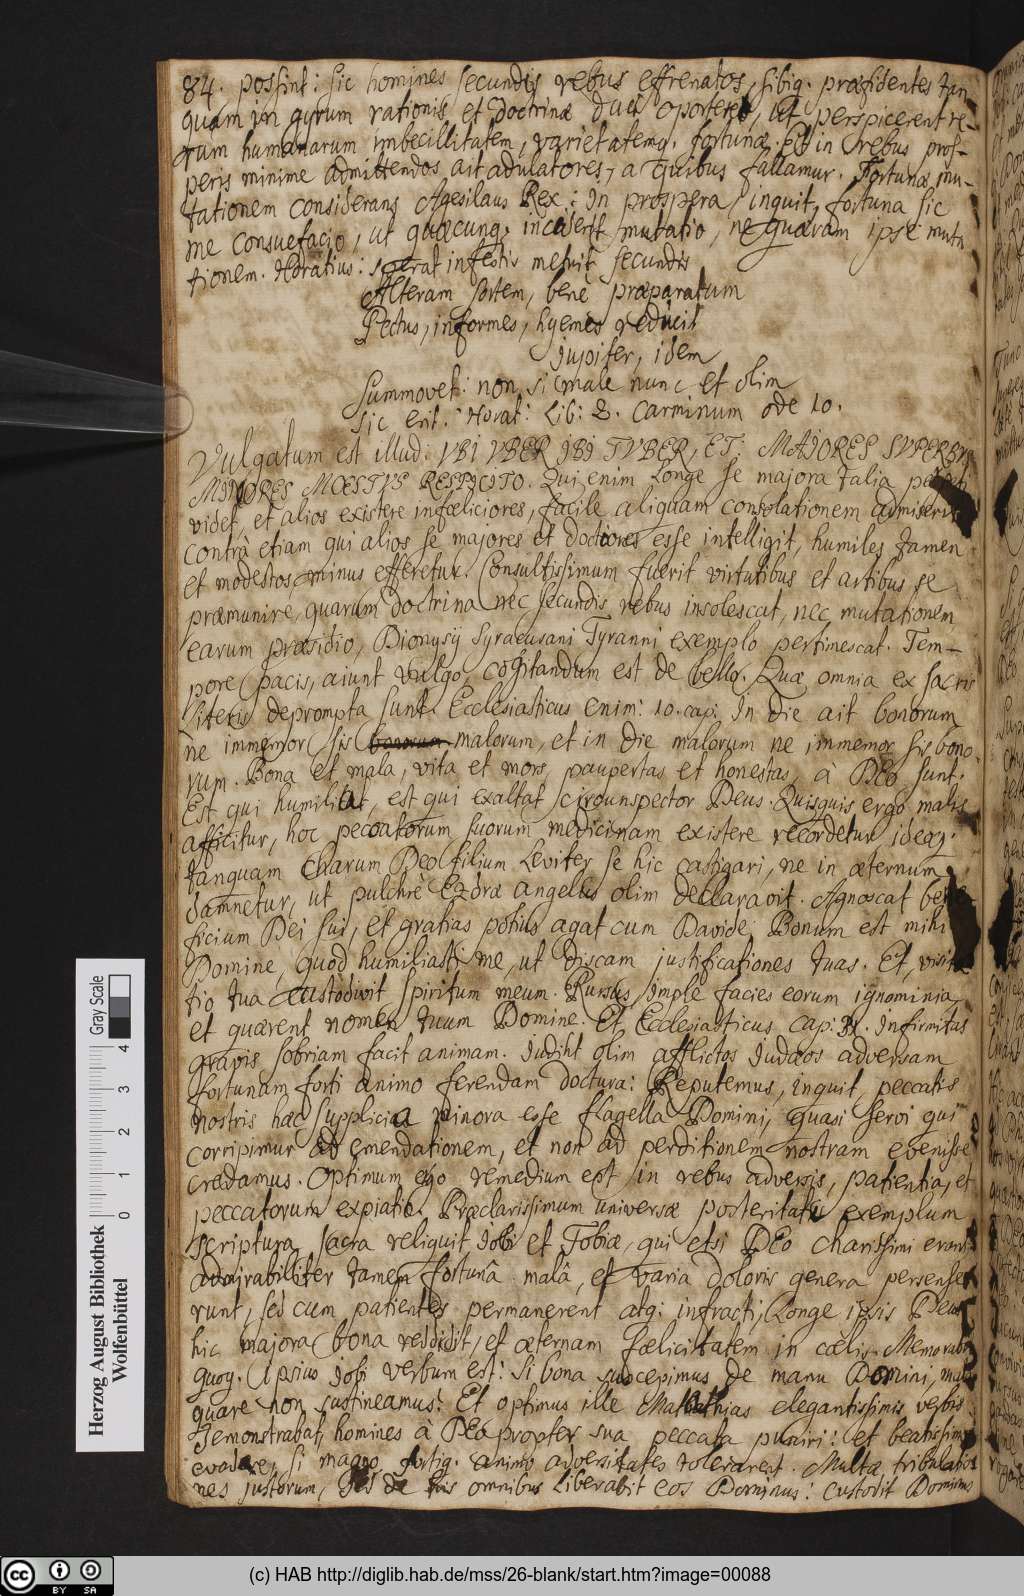 84. possint: sic homines secundis rebus effrenatos, sibiq. præfidentes tan
quam in gyrum rationis et doctrinæ duci oportere, ut perspicerent re-
rum humanarum imbecillitatem, varietatemq. fortunæ. Et in rebus pros-
peris minime admittendos ait adulatores, a quibus fallamur. Fortunæ mu-
tationem considerans Agesilaus Rex: In prospera, inquit, fortuna sic
me consuefacio, ut quæcunq. inciderit mutatio, ne quæram ipse muta
tionem. Horatius: sperat infestis metuit secundis
Alteram sortem, bene præparatum
Pectus, informes, hyemes reducit
Jupiter, idem
Summovet: non si male nunc et olim
Sic erit. Horat: Lib: 2. Carminum ode 10.
Vulgatum est illud: VBI VBER IBI TVBER, ET: MAJORES SVPERBVS
MINORES MOESTVS RESPICITO. Qui enim longe se majora talia
videt, et alios existere infœliciores, facile aliquam consolationem
contrà etiam qui alios se majores et doctiores esse intelligit, humiles tamen
et modestos minus efferetur. Consultissimum fuerit virtutibus et artibus se
præmunire, quarum doctrina nec secundis rebus insolescat, nec mutationem
earum præsidio, Dionysij Syracusani Tyranni exemplo pertimescat. Tem-
pore pacis, aiunt vulgo, cogitandum est de bello. Quæ omnia ex sacris
literis deprompta sunt. Ecclesiasticus enim: 10. cap: In die ait bonorum
ne immemor sis bonorum malorum, et in die malorum ne immemor sis bono
rum. Bona et mala, vita et mors, paupertas et honestas, à DEO sunt.
Est qui humiliat, est qui exaltat circunspector Deus. Quisquis ergo malis
afficitur, hoc peccatorum suorum medicinam existere recordetur, ideoq.
tanquam charum Deo filium leviter se hic castigari, ne in æternum
damnetur, ut pulchrè Ezdræ angelus olim declaravit. Agnoscat bene-
ficium Dei sui, et gratias potius agat cum Davide, Bonum est mihi
Domine, quod humiliasti me, ut discam justificationes tuas. Et, visita
tio tua custodivit spiritum meum. Rursus Imple facies eorum ignominia,
et quærent nomen tuum Domine. Et Ecclesiasticus cap: 31. Infirmitas
gravis sobriam facit animam. Judiht olim afflictos Judæos adversam
fortunam forti animo ferendam doctura: Reputemus, inquit, peccatis
nostris hæc supplicia minora esse flagella Domini, quasi servi qui
corripimur ad emendationem, et non ad perditionem nostram evenisse
credamus. Optimum ergo remedium est in rebus adversis, patientia, et
peccatorum expiatio. Præclarissimum universæ posteritati exemplum
scriptura sacra reliquit Jobi et Tobiæ, qui etsi DEO charissimi erant
admirabiliter tamen fortunâ malâ, et varia doloris genera persense
runt, sed cum patientes permanerent atq: infracti, longe ipsis Deus
hic majora bona reddidit, et æternam fœlicitatem in cœlis. Memorabile
quoq. ipsius Jobi verbum est: Si bona suscepimus de manu Domini, mala
quare non sustineamus? Et optimus ille Mattathias elegantissimis verbis
demonstrabat, homines à DEO propter sua peccata puniri: et beatissimos
evadere, si magno fortiq. animo adversitates tolerarent. Multæ tribulatio
nes justorum, sed de his omnibus liberabit eos Dominus: custodit Dominus
Herzog August Bibliothek
Wolfenbüttel
0 1 2 3 4
Gray Scale
cc BY SA
(c) HAB http://diglib.hab.de/mss/26-blank/start.htm?image=00088